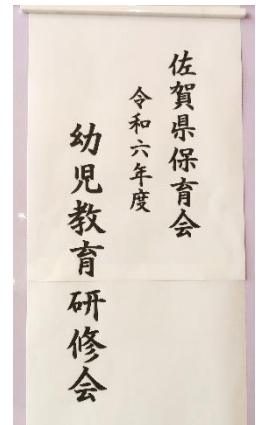 佐賀県保育会
令和六年度
幼児教育研修会